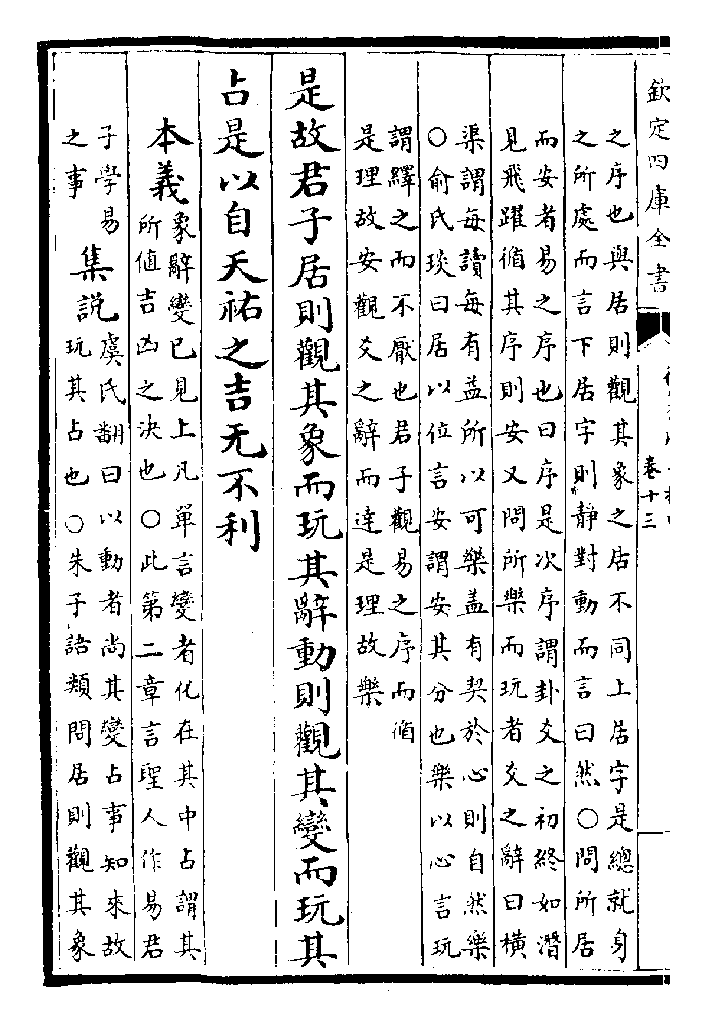 欽定四庫全書
卷十三
之序也與居則觀其象之居不同上居字是總就身
之所處而言下居字則靜對動而言曰然○問所居
而安者易之序也曰序是次序謂卦爻之初終如潛
見飛躍循其序則安又問所樂而玩者爻之辭曰橫
渠謂每讀每有益所以可樂蓋有契於心則自然樂
○俞氏琰曰居以位言安謂安其分也樂以心言玩
謂繹之而不厭也君子觀易之序而循
是理故安觀爻之辭而達是理故樂
是故君子居則觀其象而玩其辭動則觀其變而玩其
占是以自天祐之吉无不利
本義
象辭變已見上凡單言變者化在其中占謂其
所值吉凶之決也○此第二章言聖人作易君
子學易
之事
集説
虞氏翻曰以動者尚其變占事知來故
玩其占也○朱子語類問居則觀其象